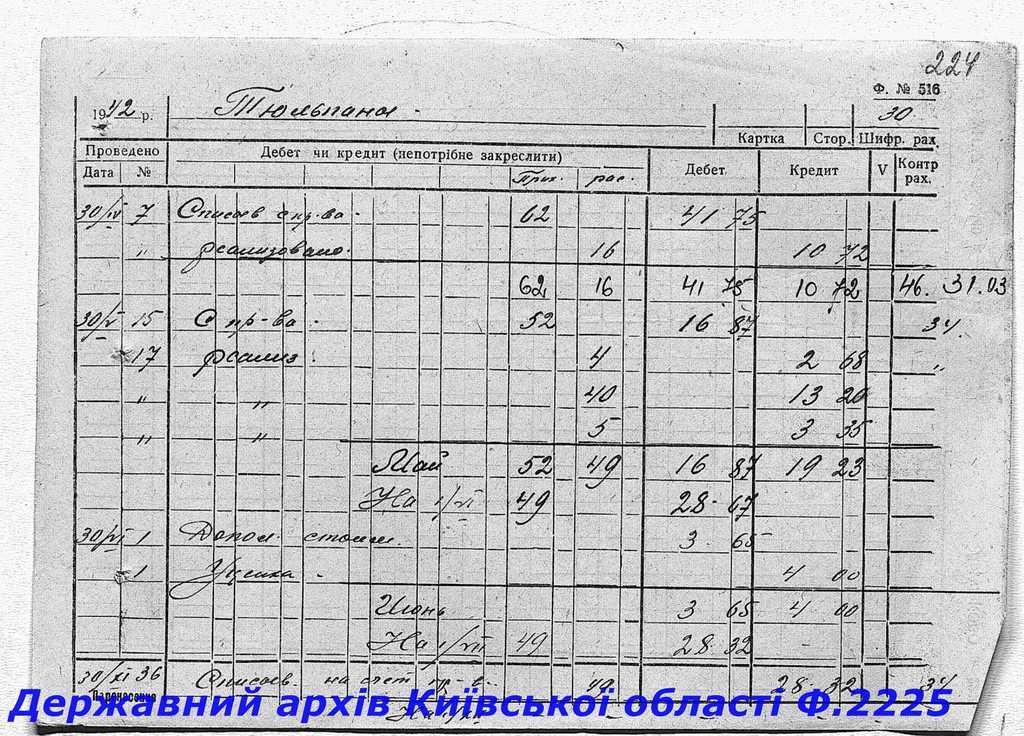 224
Ф. № 516
1942 р. Тюльпана 30.
Картка Стор. Шифр. рах.
Проведено Дебет чи кредит (непотрібне закреслити) Дебет Кредит V Контр рах.
Дата № Прих. рас.
30/IV 7 Списов с пр-ва. 62 41 75
" реализовано. 16 10 72
62 16 41 75 10 72 46. 31.03
30/V 15 С пр-ва. 52 16 87 34.
17 реализ. 4 2 68 "
" " 40 13 20
" " 5 3 35
Май 52 49 16 87 19 23
На 1/VI 49 28 67
30/VI 1 Допол. стоим. 3 65
1 Уценка 4 00
Июнь 3 65 4 00
На 1/VII 49 28 32
30/XI 36 Списов. на счет пр-в. 49 28 32 34
Перенесено
Державний архів Київської області Ф.2225